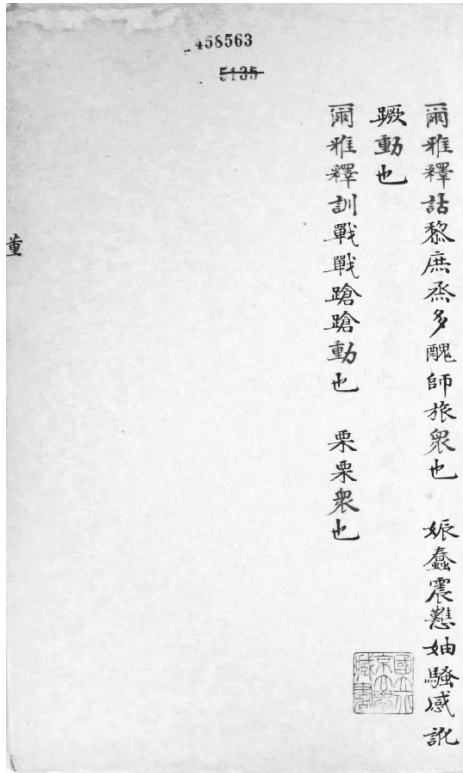 458563
5135
爾雅釋詁黎庶烝多醜師旅衆也　娠蠢震戁妯騷感訛
蹶動也
爾雅釋訓戰戰蹌蹌動也　栗栗衆也
國立北
京大學
藏書
董